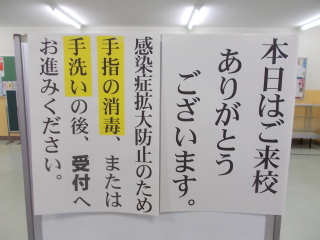 本日はご来校
ありがとう
ございます。
感染症拡大防止のため
手指の消毒、または
手洗いの後、受付へ
お進みください。